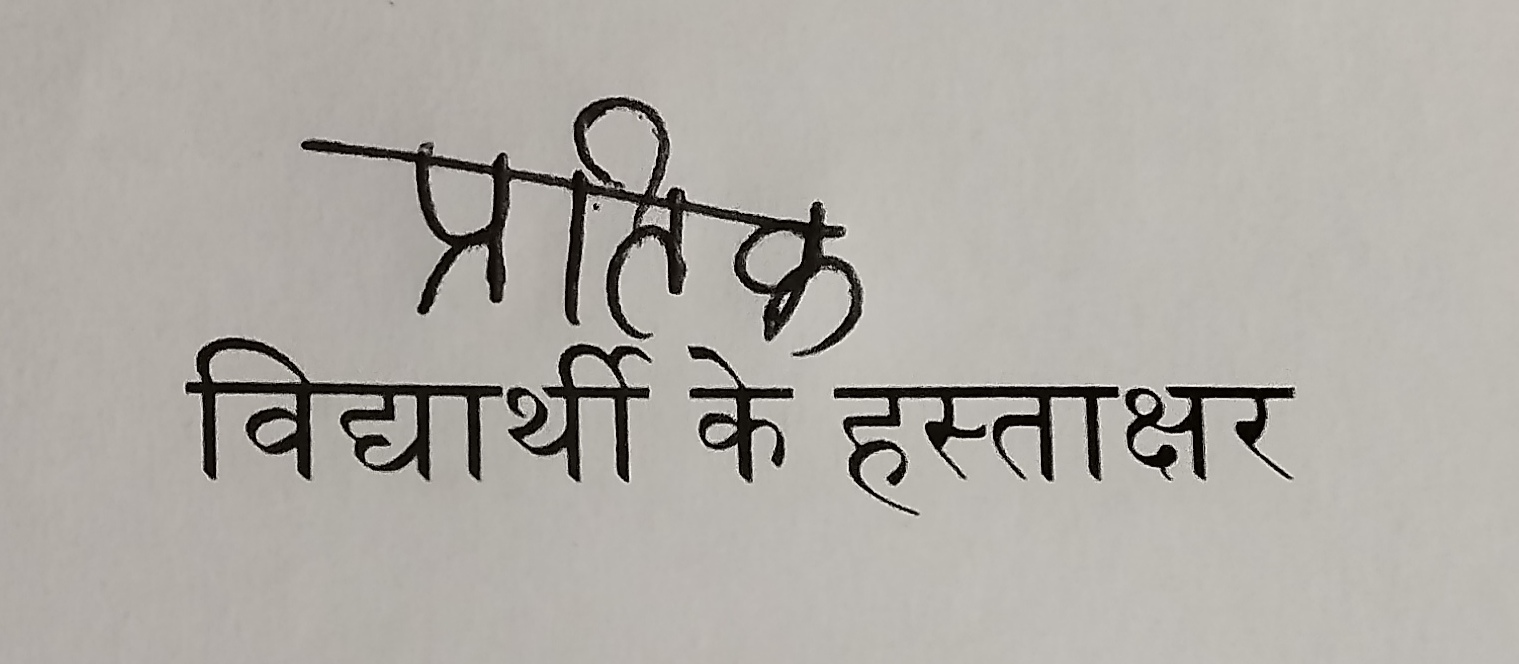 प्रतिक
विद्यार्थी के हस्ताक्षर